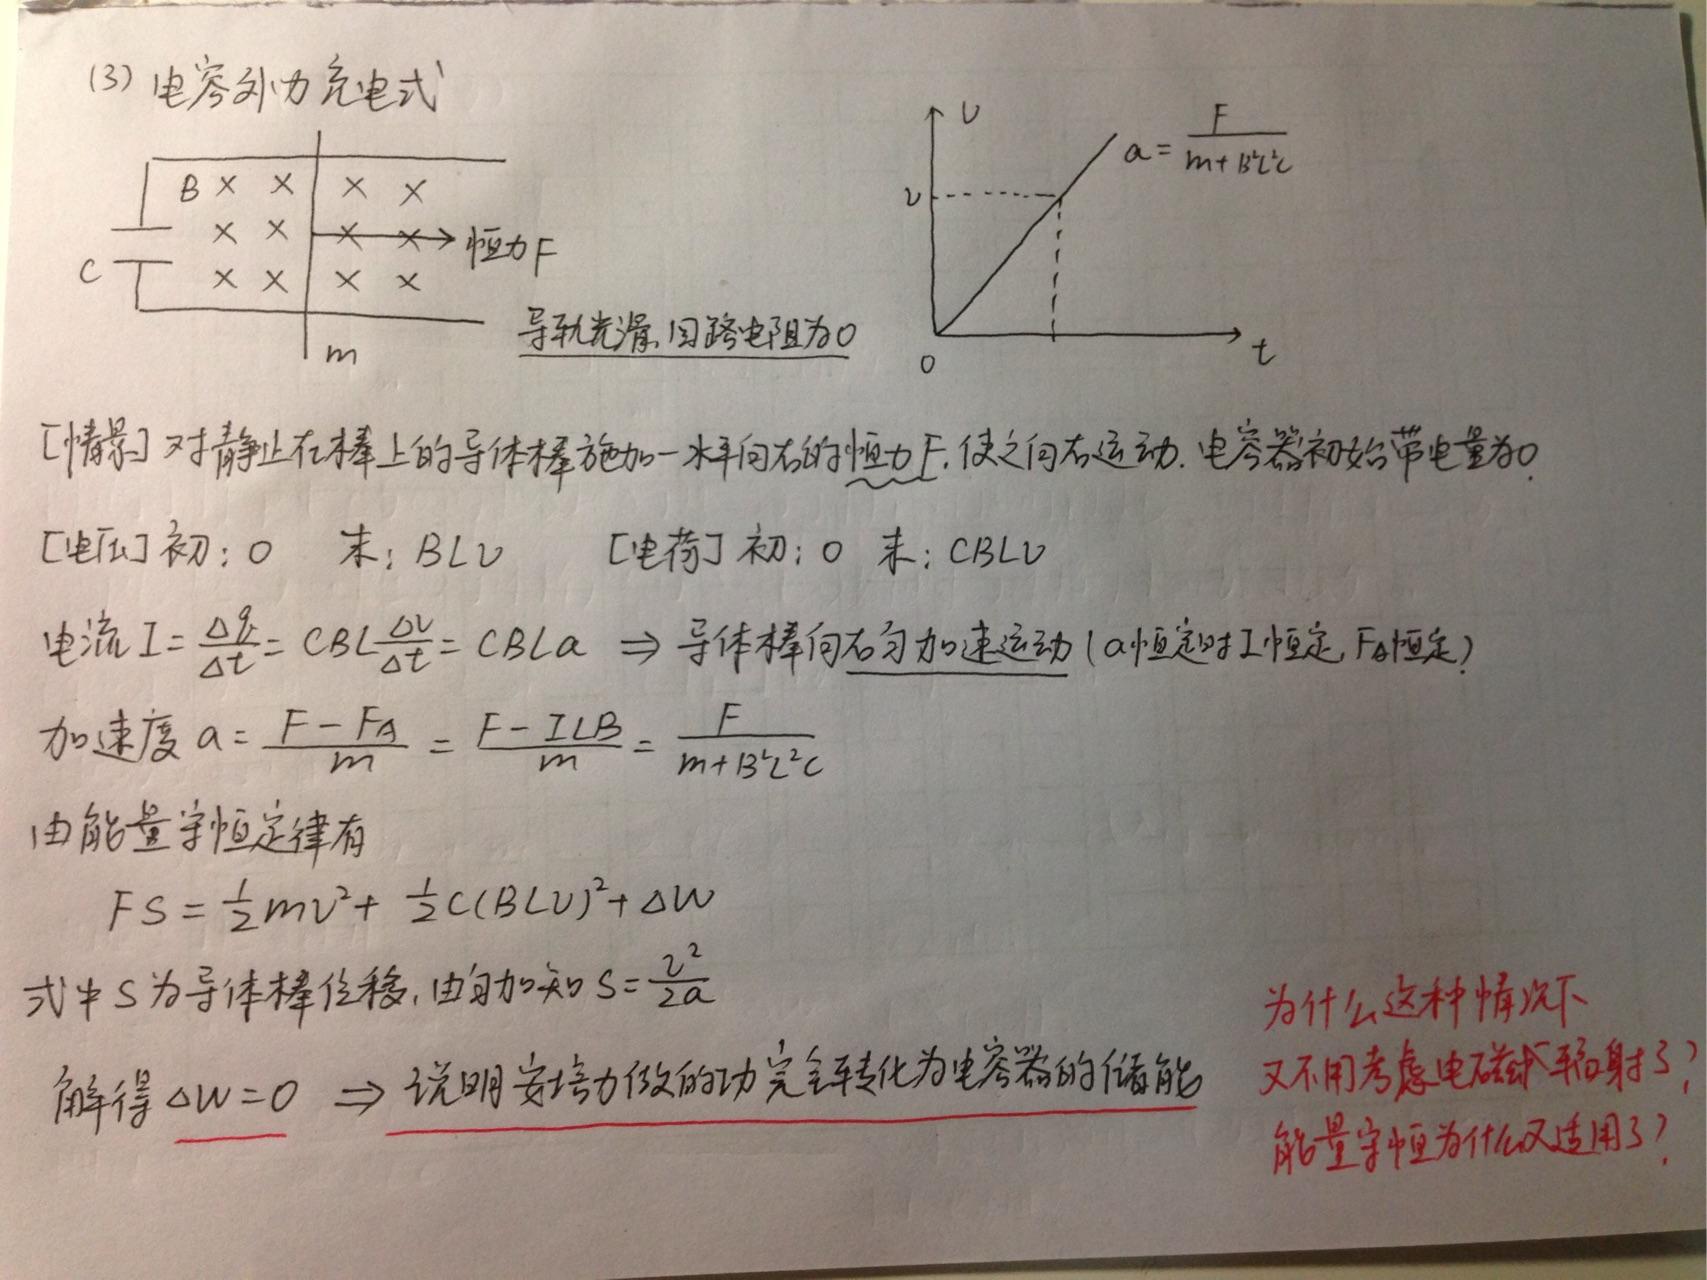 (3) 电容外力充电式
B
C
恒力F
m
导轨光滑,回路电阻为0
υ
υ
a = F/(m+B²L²C)
0
t
[情景] 对静止在棒上的导体棒施加一水平向右的恒力F,使之向右运动.电容器初始带电量为0.
[电压] 初: 0 末: BLυ [电荷] 初: 0 末: CBLυ
电流 I = Δq/Δt = CBL Δυ/Δt = CBLa ⇒ 导体棒向右匀加速运动 (a恒定时I恒定,F_A恒定)
加速度 a = (F-F_A)/m = (F-ILB)/m = F/(m+B²L²C)
由能量守恒定律有
FS = ½mυ² + ½C(BLυ)² + ΔW
式中S为导体棒位移,由匀加知 S = υ²/2a
解得 ΔW = 0 ⇒ 说明安培力做的功完全转化为电容器的储能
为什么这种情况下
又不用考虑电磁辐射了?
能量守恒为什么又适用了?